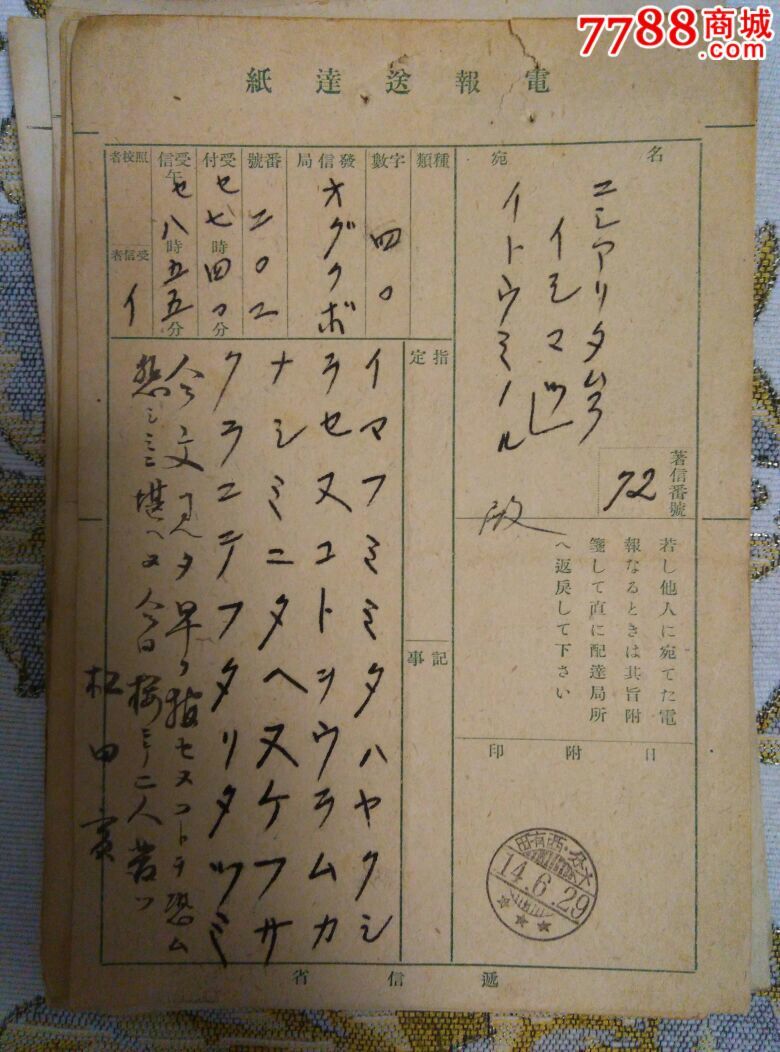 7788商城
.com
電報送達紙
名宛
ニシアリタムラ
イトウミノル
著信番號
72
若し他人に宛てた電
報なるときは其旨附
箋して直に配達局所
へ返戻して下さい
日附印
14.6.29
種類
字數
四〇
發信局
番號
二〇二
受付
七時四〇分
受信
午
八時五五分
照校者
受信者
イ
指定
記事
イマフミミタハヤクシ
ラセヌコトヲウラムカ
ナシミニタヘヌケフサ
クラニテフタリタツミ
今文見タ早ク報セヌコトヲ
悲シミニ堪ヘヌ今日桜ニテ二人
松田實
遞信省